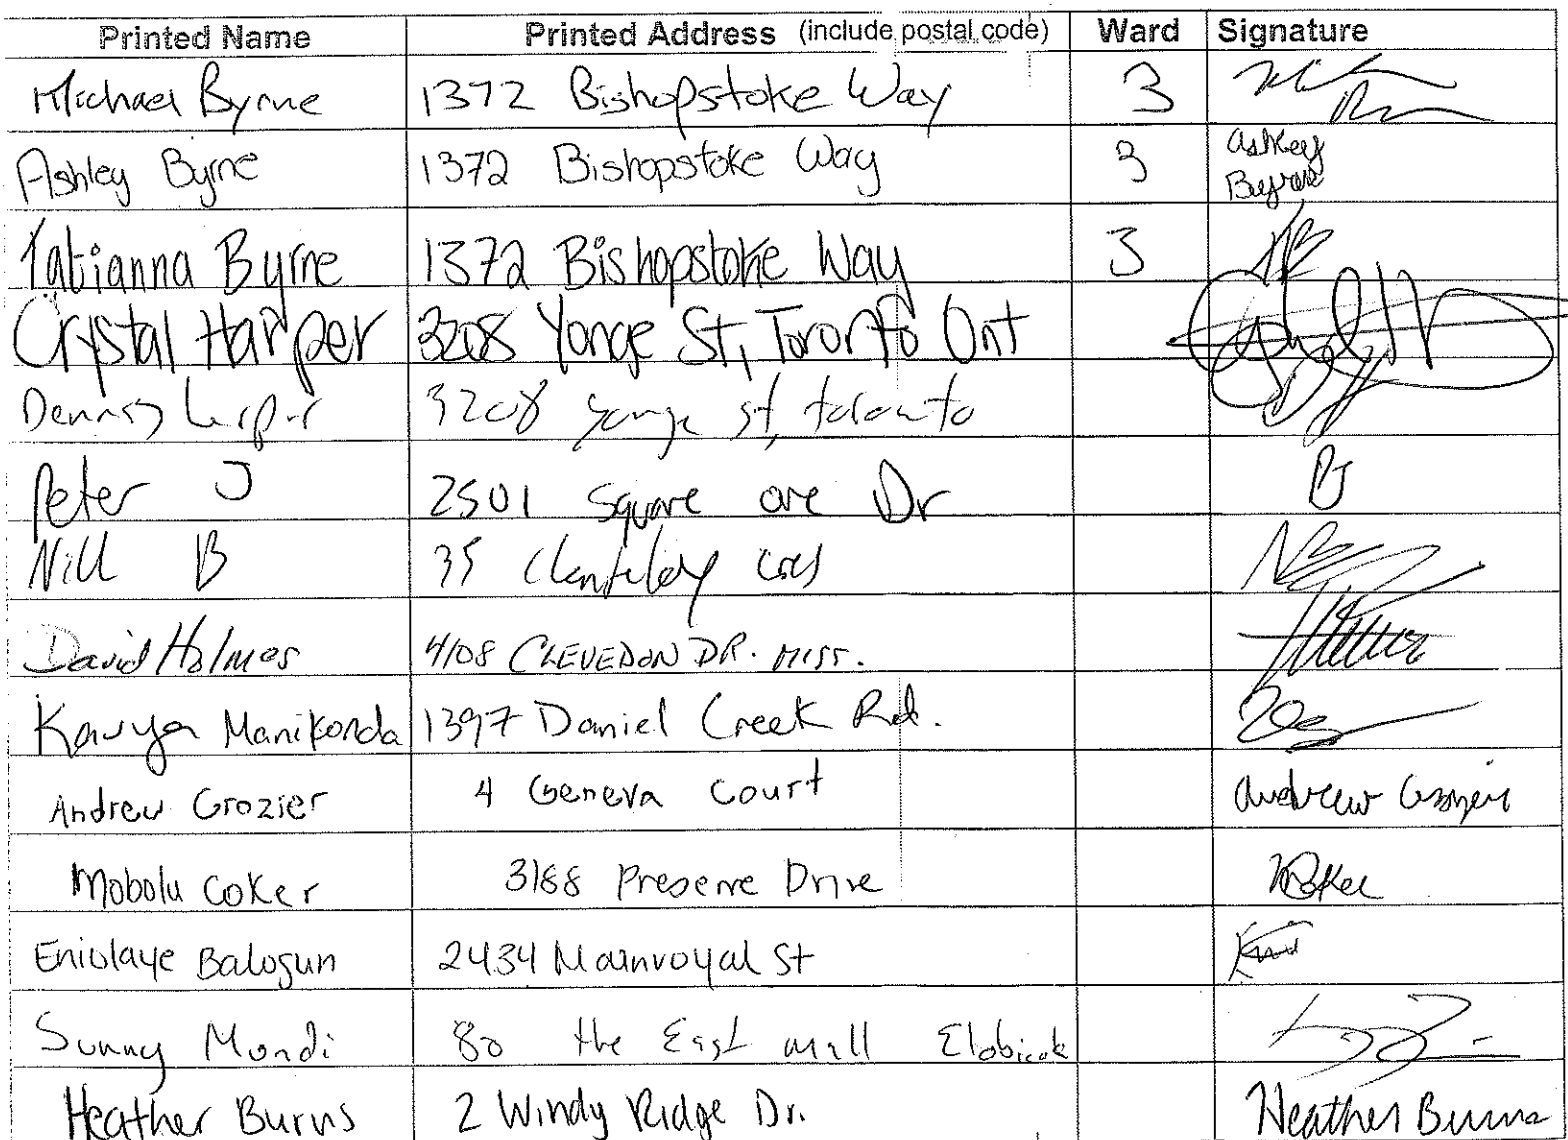 Printed Name Printed Address (include postal code) Ward Signature
Michael Byrne 1372 Bishopstoke Way 3
Ashley Byrne 1372 Bishopstoke Way 3 Ashley
Byrne
Tatianna Byrne 1372 Bishopstoke Way 3 TB
Crystal Harper 3208 Yonge St, Toronto Ont
Dennis 3208 yonge st, toronto
Peter J 2501 Square one Dr PJ
Nill B 35 NB
David Holmes 4108 CLEVEDON DR. MISS.
Kavya Manikonda 1397 Daniel Creek Rd.
Andrew Crozier 4 Geneva Court Andrew Crozier
Mobolu Coker 3188 Preserve Drive
Eniolaye Balogun 2434 Mainroyal St
Sunny Mondi 80 the East mall Etobicok
Heather Burns 2 Windy Ridge Dr. Heather Burns